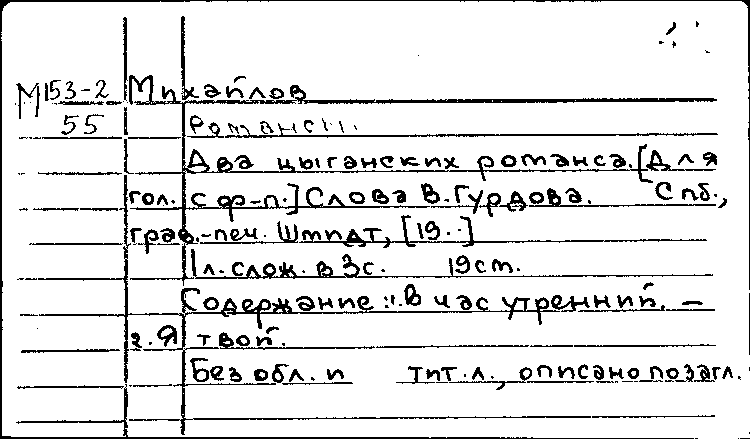 М153-2 Михайлов
55 Романсы.
Два цыганских романса. [Для
гол. с ф-п.] Слова В. Гурдова. Спб.,
грав.-печ. Шмидт, [19..]
1 л. слож. в 3 с. 19 см.
Содержание: 1. В час утренний. –
2. Я твой.
Без обл. и тит. л., описано по загл.